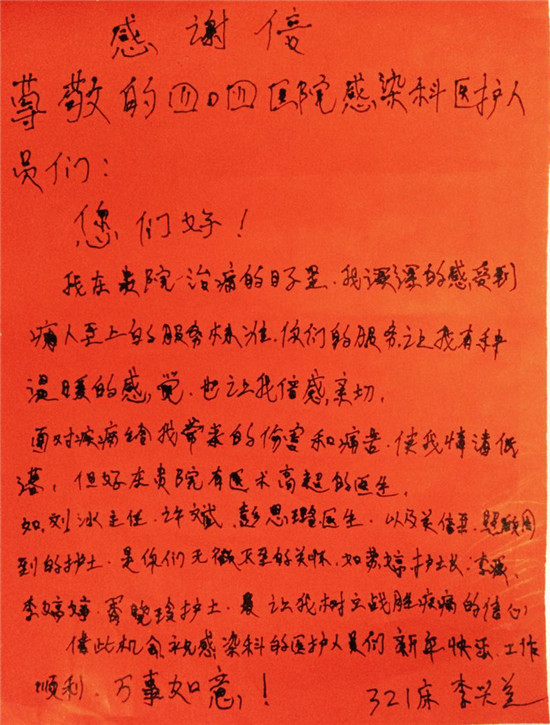 感谢信
尊敬的四〇四医院感染科医护人
员们：
您们好！
我在贵院治病的日子里.我深深的感受到
病人至上的服务标准.你们的服务让我有种
温暖的感觉.也让我倍感亲切.
面对疾病给我带来的伤害和痛苦.使我情绪低
落.但好在贵院有医术高超的医生.
如刘冰主任.许斌.彭思璐医生.以及关倍至.照顾周
到的护士.是你们无微不至的关怀.如苏婷护士长.李
李婷婷.晓玲护士.是让我树立战胜疾病的信心
借此机会祝感染科的医护人员们新年快乐.工作
顺利.万事如意！
321床 李兴兰